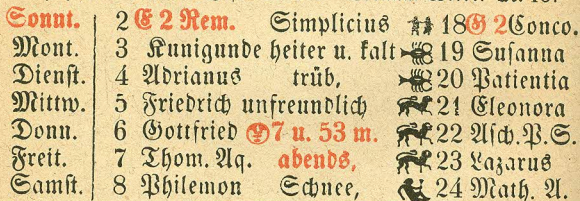 Sonnt. 2 E 2 Rem. Simplicius 18 G 2 Conco.
Mont. 3 Kunigunde heiter u. kalt 19 Susanna
Dienst. 4 Adrianus trüb, 20 Patientia
Mittw. 5 Friedrich unfreundlich 21 Eleonora
Donn. 6 Gottfried 7 u. 53 m. 22 Asch.P.S.
Freit. 7 Thom. Aq. abends, 23 Lazarus
Samst. 8 Philemon Schnee, 24 Math. A.